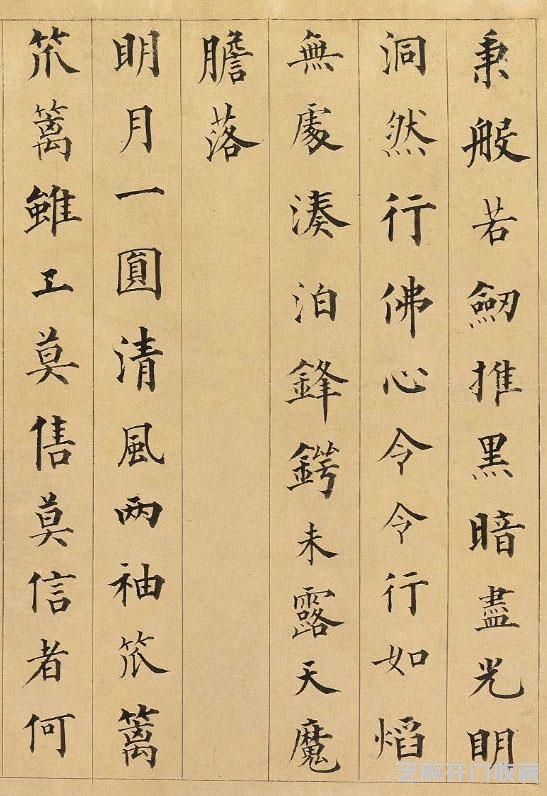 秉般若劒推黑暗盡光明
洞然行佛心令令行如熖
無處湊泊鋒鍔未露天魔
膽落
明月一圓清風两袖笊篱
笊篱雖工莫售莫信者何
芝麻开门收藏